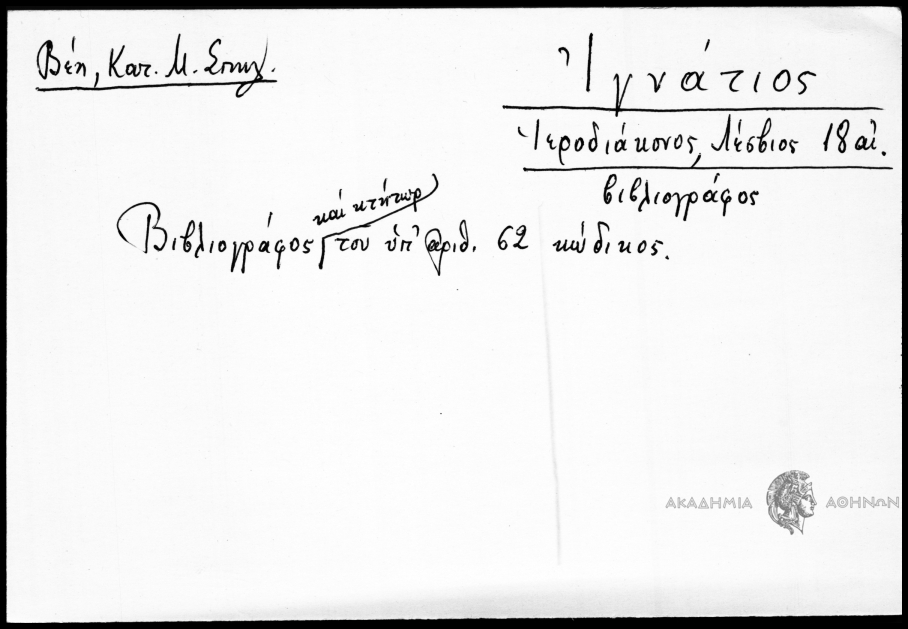 Βέη, Κατ. Μ. Σπηλ.
Ἰγνάτιος
Ἱεροδιάκονος, Λέσβιος 18 αἰ.
βιβλιογράφος
καί κτήτωρ
Βιβλιογράφος τοῦ ὑπ' ἀριθ. 62 κώδικος.
ΑΚΑΔΗΜΙΑ ΑΘΗΝΩΝ